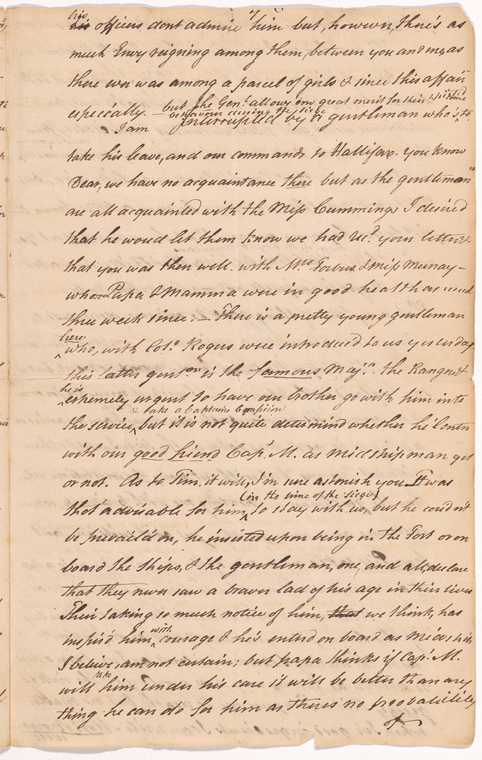 his officers dont admire him but, however, there's as
much Envy reigning among them, between you and me, as
there ever was among a parcel of girls & since this affair
especcally. — but the Genl. allows one great merit for their
behaviour during the siege
I am Interrupted by a gentleman who's to
take his leave, and our commands to Hallifax. you know
Dear, we have no acquaintance there but as the gentleman
are all acquainted with the Miss Cummings I desired
that he would let them know we had recd. your letter &
that you was then well. with Mrs Forbus & Miss Murray —
whose Papa & Mamma were in good health as
three week since. — There is a pretty young gentleman
here
who, with Colo. Rogus were introduced to us yesterday
this latter gentn. is the famous Majr. the Ranger &
he is
extremely urgent to have our brother go with him into
& take a Captains Comission
the service, but it is not quite determind whether he'll enter
with our good friend Capt. M. as midshipman yet
or not. As to Tim, it will, I'm sure astonish you. It was
(in the time of the siege)
thot adviseable for him, to stay with us, but he could n't
be prevail'd on, he insisted upon being in the Fort or on
board the ships, & the gentleman, one, and all, declare
that they never saw a braver lad of his age in their lives
Their taking so much notice of him, that we think, has
inspir'd him with courage & he's enterd on board as
I believe, am not certain; but papa thinks if Capt. M.
will take him under his care it will be better than any
thing he can do for him as there's no probabillity
of